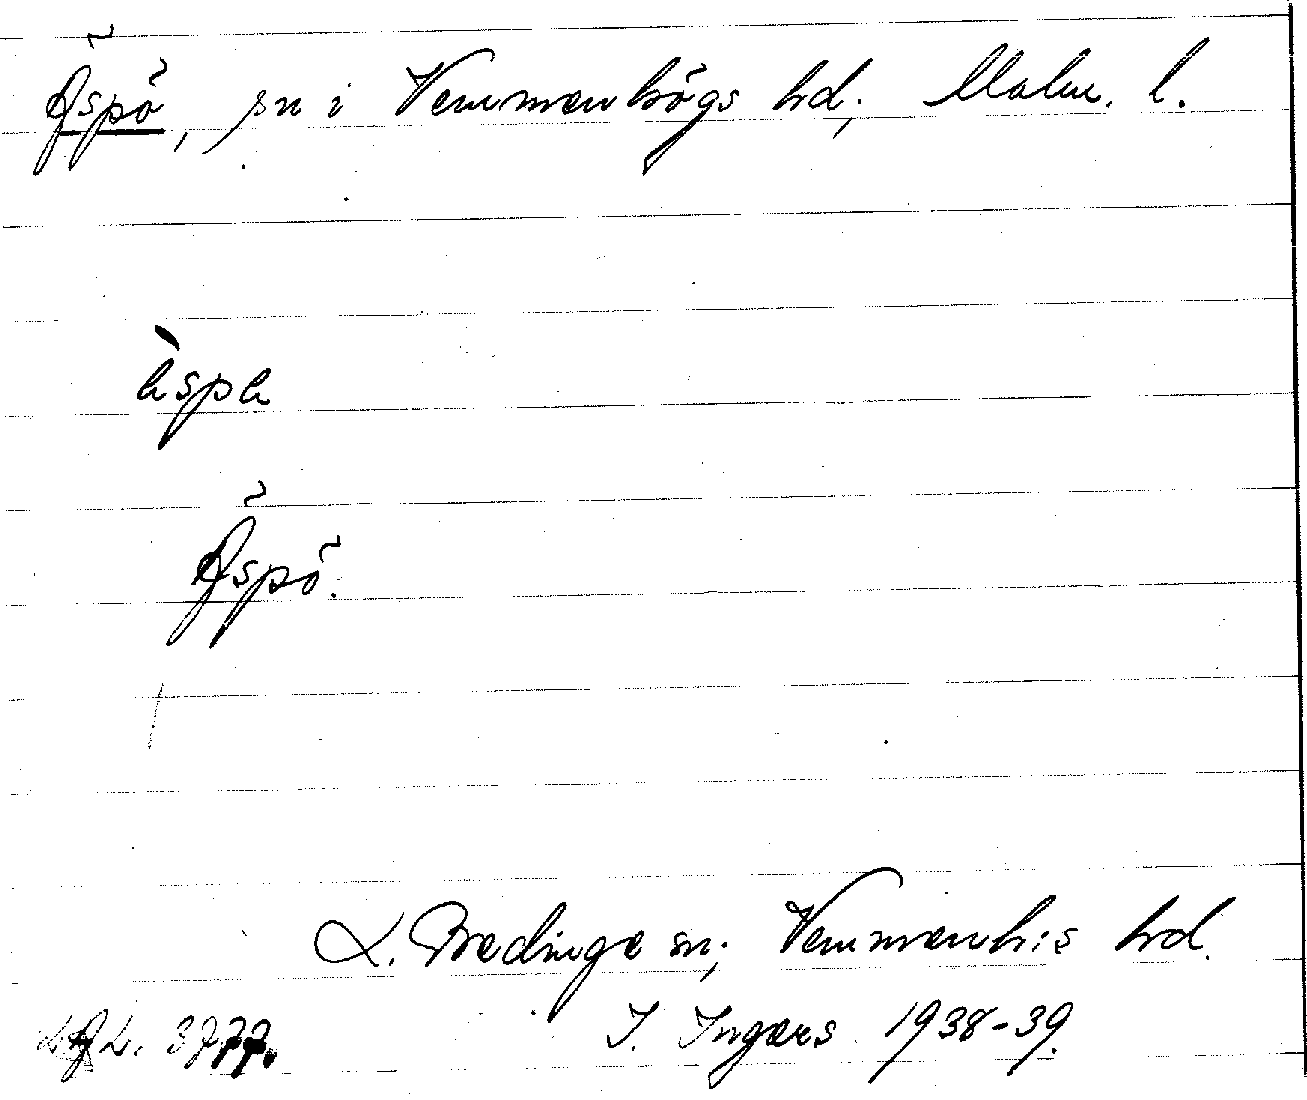 Äspö, sn i Vemmenhögs hd, Malm. l.
Äspö.
L. Bedinge sn, Vemmenh:s hd.
I. Ingers 1938-39.